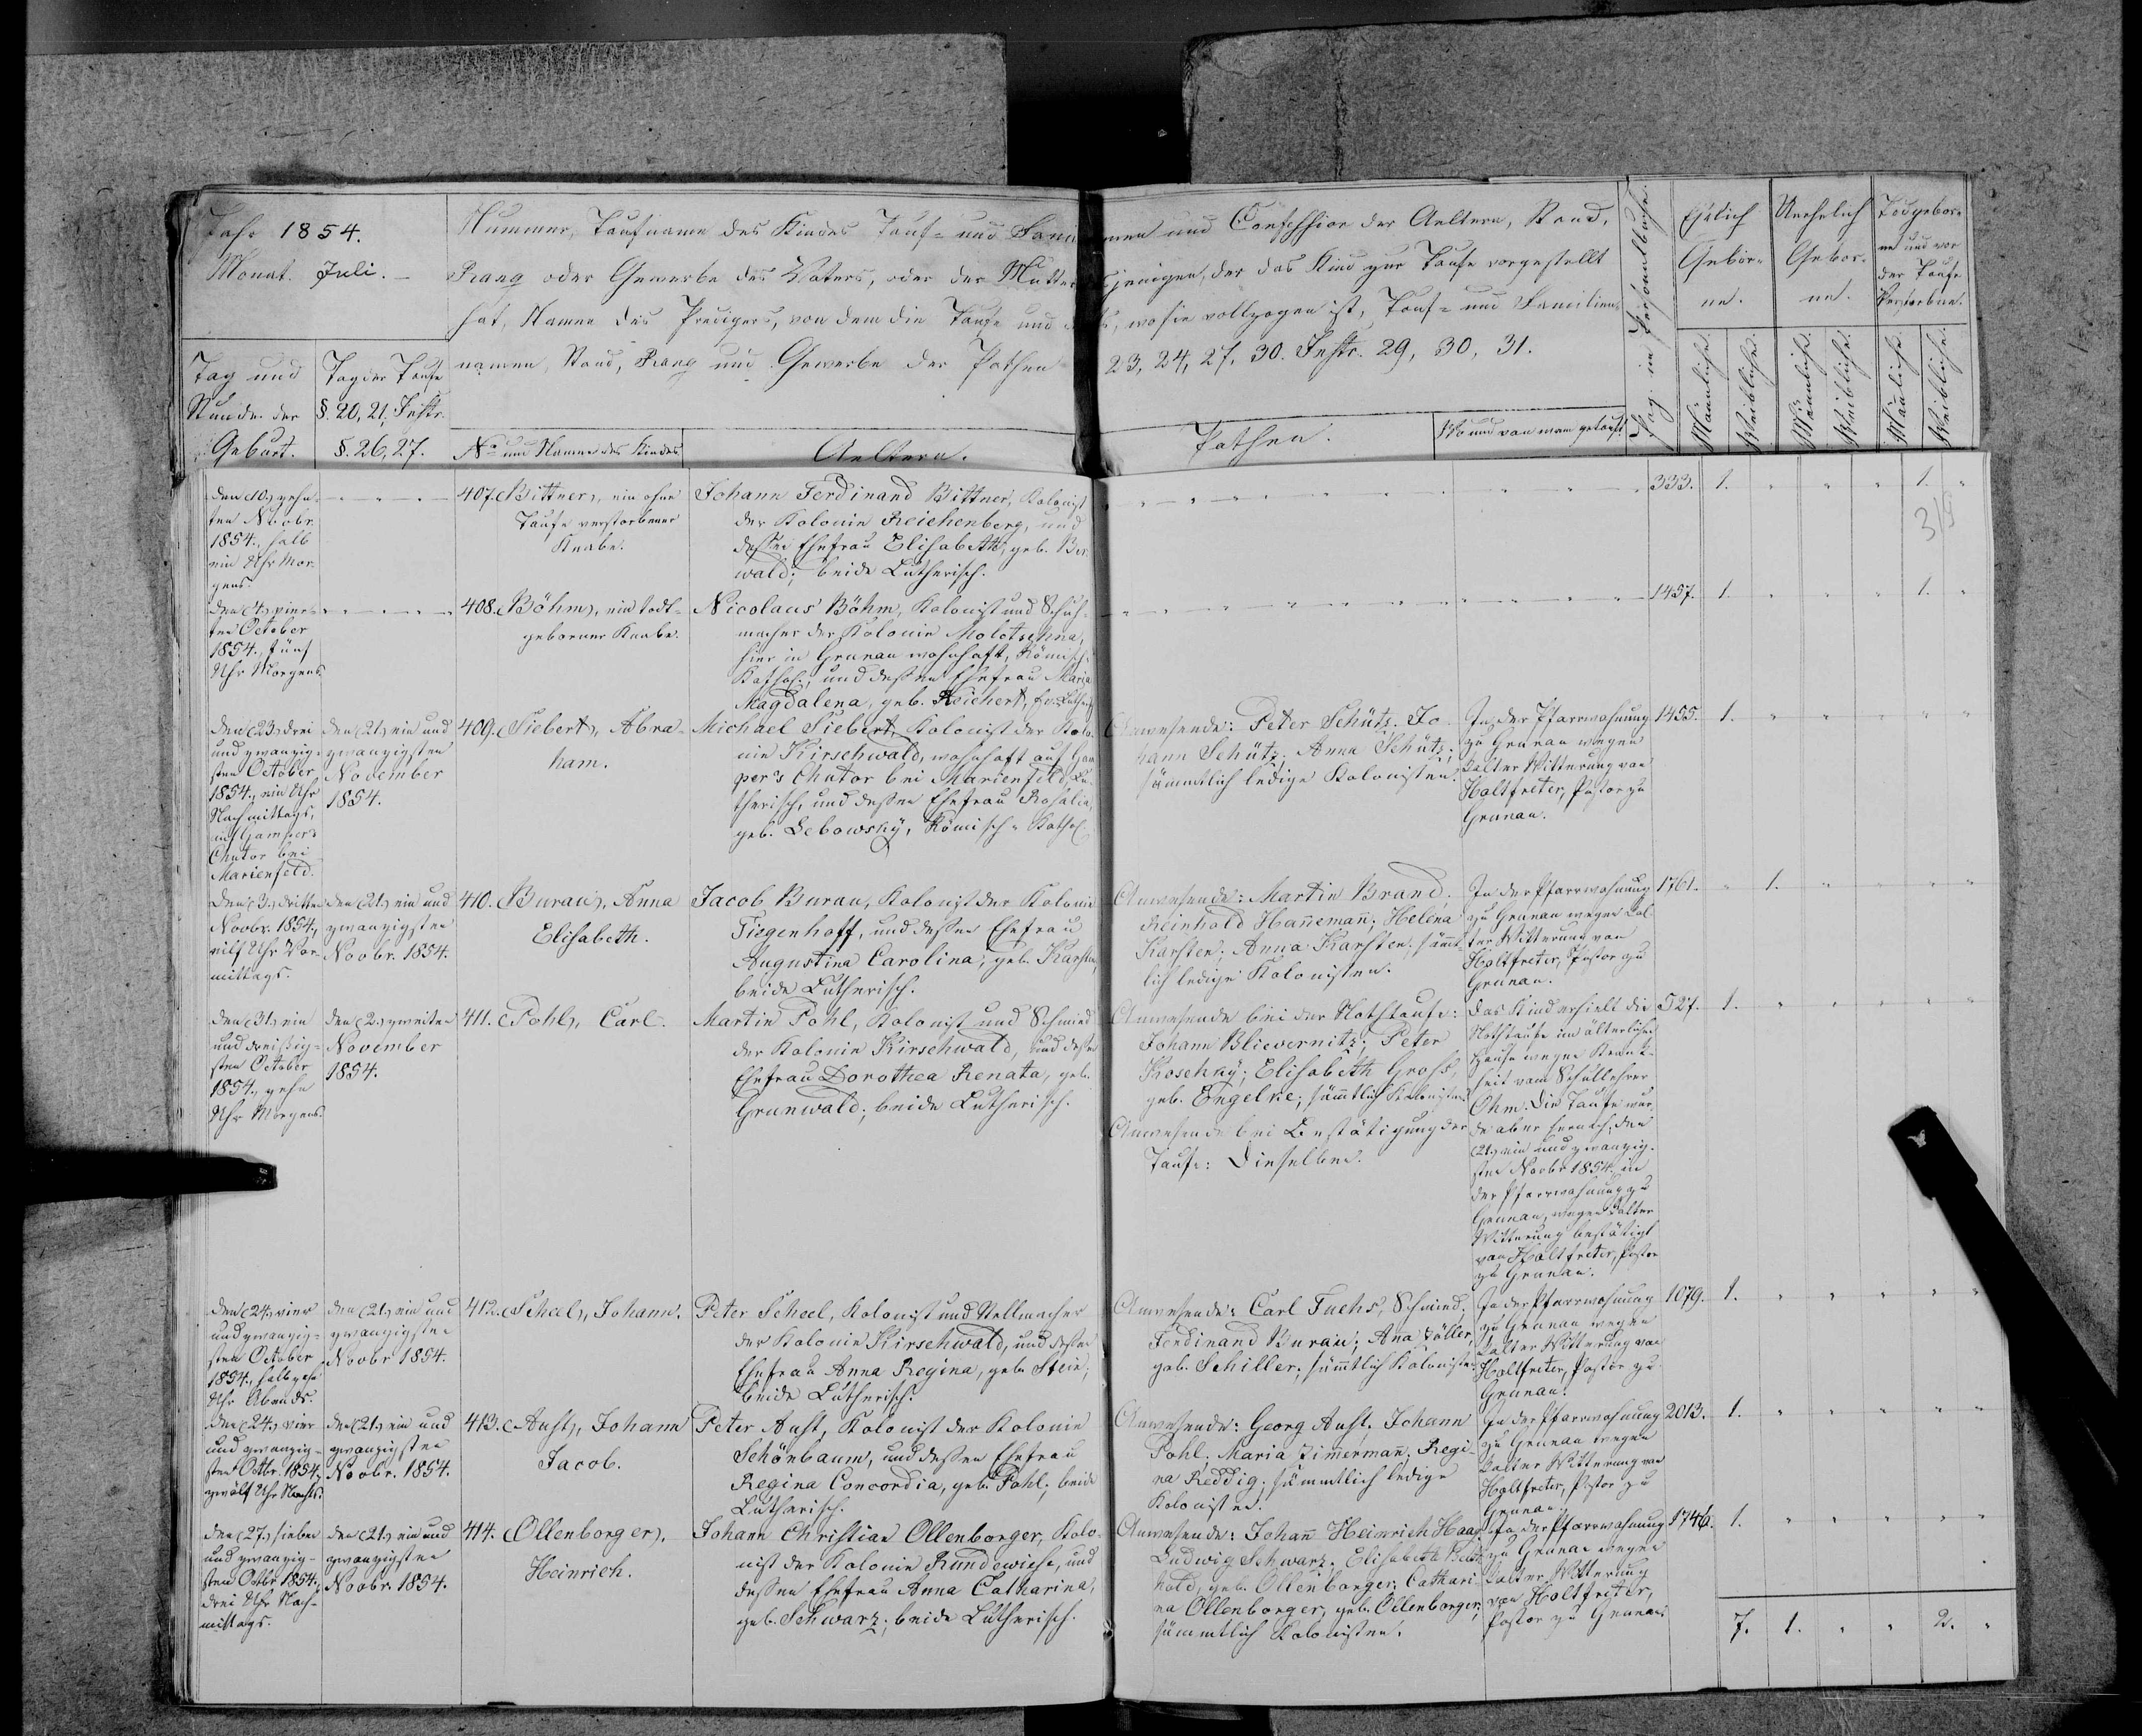 Jahr 1854.
Monat. Juli. –
Nummer, Taufname des Kindes Tauf- und Fami
Rang oder Gewerbe des Vaters, oder der Mutter
hat, Namen des Predigers, von dem die Taufe und
namen, Stand, Rang und Gewerbe der Pathen
Tag und
Stunde der
Geburt.
Tag der Taufe
§. 20, 21. Instr.
§. 26, 27.
No und Namen des Kindes
Aeltern.
men und Confession der Aeltern, Stand,
jenigen, der das Kind zur Taufe vorgestellt
wo sie vollzogen ist, Tauf- und Familien-
23, 24, 27, 30. Instr. 29, 30, 31.
Pathen.
Wo und von wem getauft
Pag. im Personalbuche.
Ehelich
Gebor-
ne.
Unehelich
Gebor-
ne.
Todgebor-
ne und vor
der Taufe
Verstorbene.
Männliche.
Weibliche.
Männliche.
Weibliche.
Männliche.
Weibliche.
den (10.) zehn-
ten Novbr.
1854., halb
ein Uhr Mor-
gens.
407. (Bittner), ein ohne
Taufe verstorbener
Knabe.
Johann Ferdinand Bittner, Kolonist
der Kolonie Reichenberg, und
dessen Ehefrau Elisabeth, geb. Ber
wald; beide Lutherisch.
333. 1. 1.
319
den (4.) vier-
ten October
1854., fünf
Uhr Morgens.
408. (Böhm), ein todt-
geborner Knabe.
Nicolaus Böhm, Kolonist und Schuh-
macher der Kolonie Molotschna,
hier in Grunau wohnhaft, Römisch-
Kathol., und dessen Ehefrau Maria
Magdalena, geb. Reichert, Ev. Luther
1457. 1. 1.
den (23.) drei
und zwanzig-
sten October
1854., ein Uhr
Nachmittags,
auf Gamper's
Chutor bei
Marienfeld.
den (21.) ein und
zwanzigsten
November
1854.
409. (Siebert), Abra-
ham.
Michael Siebert, Kolonist der Kolo-
nie Kirschwald, wohnhaft auf Gam
per's Chutor bei Marienfeld, Lu-
therisch, und dessen Ehefrau Rosalia,
geb. Lebowsky, Römisch-Kathol.
Anwesende: Peter Schütz. Jo-
hann Schütz; Anna Schütz;
sämmtlich ledige Kolonisten.
In der Pfarrwohnung
zu Grunau wegen
kalter Witterung von
Holtfreter, Pastor zu
Grunau.
1455. 1.
den (3.) dritten
Novbr. 1854.,
eilf Uhr Vor-
mittags.
den (21.) ein und
zwanzigsten
Novbr. 1854.
410. (Burau), Anna
Elisabeth.
Jacob Burau, Kolonist der Kolonie
Tiegenhoff, und dessen Ehefrau
Augustina Carolina, geb. Karsten,
beide Lutherisch.
Anwesende: Martin Brand;
Reinhold Hanneman; Helena
Karsten; Anna Karsten; sämt-
lich ledige Kolonisten.
In der Pfarrwohnung
zu Grunau wegen kal-
ter Witterung von
Holtfreter, Pastor zu
Grunau.
1761. 1.
den (31.) ein
und dreißig-
sten October
1854., zehn
Uhr Morgens.
den (2.) zweiten
November
1854.
411. (Pohl), Carl.
Martin Pohl, Kolonist und Schmied
der Kolonie Kirschwald, und dessen
Ehefrau Dorothea Renata, geb.
Grunwald; beide Lutherisch.
Anwesende bei der Nothtaufe:
Johann Blievernitz; Peter
Koschky; Elisabeth Groß,
geb. Engelke; sämtlich Kolonisten.
Anwesende bei Bestätigung der
Taufe: Dieselben.
Das Kind erhielt die
Nothtaufe im älterlichen
Hause wegen Krank-
heit vom Schullehrer
Ohm. Die Taufe wur-
de aber hernach, den
(21.) ein und zwanzig-
sten Novbr. 1854. in
der Pfarrwohnung zu
Grunau, wegen kalter
Witterung bestätigt
von Holtfreter, Pastor
zu Grunau.
527. 1.
den (24.) vier
und zwanzig-
sten October
1854., halb zehn
Uhr Abends.
den (21.) ein und
zwanzigsten
Novbr. 1854.
412. (Scheel), Johann.
Peter Scheel, Kolonist und Stellmacher
der Kolonie Kirschwald, und dessen
Ehefrau Anna Regina, geb. Stein;
beide Lutherisch.
Anwesende: Carl Fuchs, Schmied.
Ferdinand Burau; Ana Zöller,
geb. Schiller; sämtlich Kolonisten.
In der Pfarrwohnung
zu Grunau wegen
kalter Witterung von
Holtfreter, Pastor zu
Grunau.
1079. 1.
den (24.) vier
und zwanzig-
sten Octbr. 1854.,
zwölf Uhr Nachts.
den (21.) ein und
zwanzigsten
Novbr. 1854.
413. (Aust), Johann
Jacob.
Peter Aust, Kolonist der Kolonie
Schönbaum, und dessen Ehefrau
Regina Concordia, geb. Pohl; beide
Lutherisch.
Anwesende: Georg Aust. Johann
Pohl. Maria Zimerman; Regi-
na Reddig; sämmtlich ledige
Kolonisten.
In der Pfarrwohnung
zu Grunau wegen
kalter Witterung von
Holtfreter, Pastor zu
Grunau.
2013. 1.
den (27.) sieben
und zwanzig-
sten Octbr. 1854.,
drei Uhr Nach-
mittags.
den (21.) ein und
zwanzigsten
Novbr. 1854.
414. (Ollenborger),
Heinrich.
Johann Christian Ollenborger, Kolo-
nist der Kolonie Rundewiese, und
dessen Ehefrau Anna Catharina,
geb. Schwarz; beide Lutherisch.
Anwesende: Johann Heinrich Haag.
Ludwig Schwarz. Elisabeth
hold, geb. Ollenborger; Cathari-
na Ollenborger, geb. Ollenborger;
sämmtlich Kolonisten.
In der Pfarrwohnung
zu Grunau wegen
kalter Witterung
von Holtfreter,
Pastor zu Grunau.
1746. 1.
7. 1. 2.